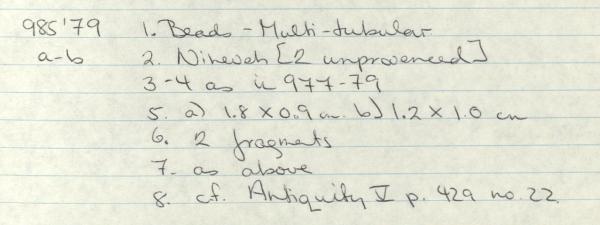 985'79 1. Beads - Multi-tubular
a-b 2. Nineveh [2 unprovenced]
3-4 as in 977-79
5. a) 1.8 x 0.9 cm. b) 1.2 x 1.0 cm
6. 2 fragments
7. as above
8. cf. Antiquity V p. 429 no. 22.